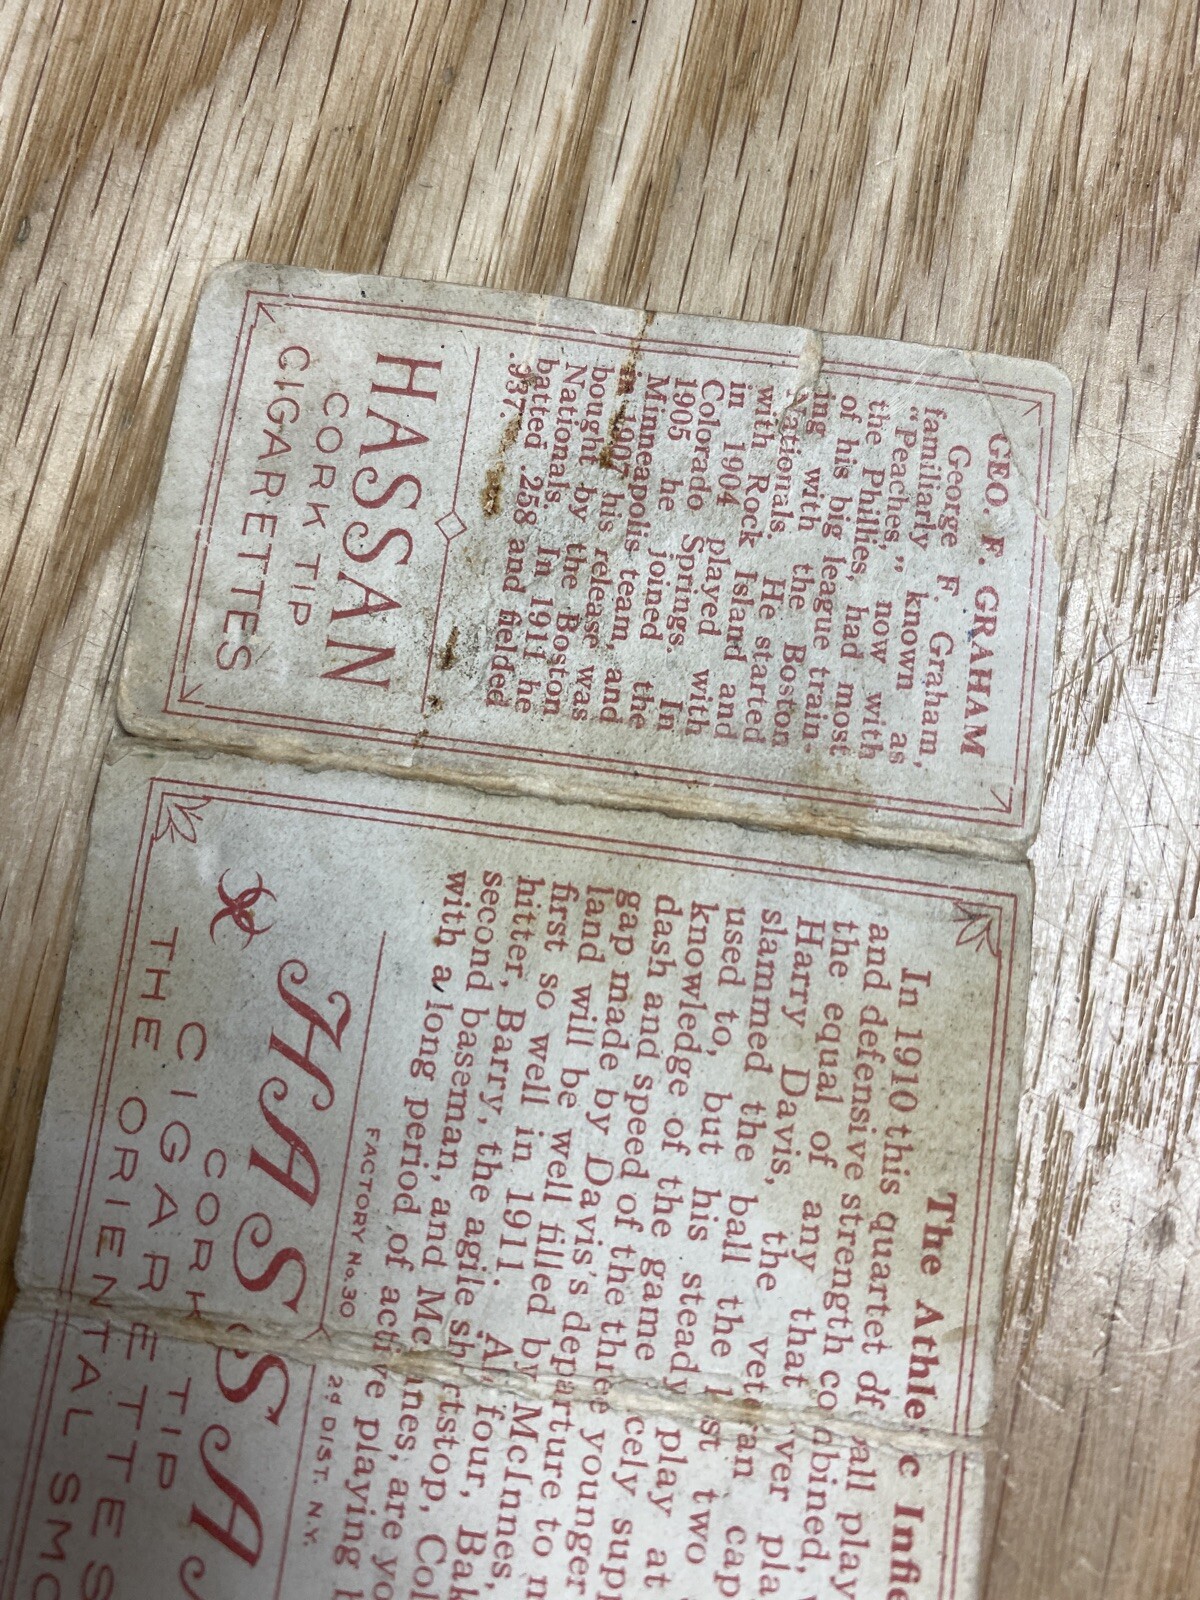 GEO. F. GRAHAM
George F. Graham,
familiarly known as
"Peaches," now with
the Phillies, had most
of his big league train-
ing with the Boston
Nationals. He started
with Rock Island and
in 1904 played with
Colorado Springs. In
1905 he joined the
Minneapolis team, and
in 1907 his release was
bought by the Boston
Nationals. In 1911 he
batted .258 and fielded
.937.
HASSAN
CORK TIP
CIGARETTES
The Athle c Infie
In 1910 this quartet of all play
and defensive strength co bined,
the equal of any that ver pla
Harry Davis, the vet an cap
slammed the ball the l st two
used to, but his steady play at
knowledge of the game cely supp
dash and speed of the three younger
gap made by Davis's departure to
land will be well filled by McInnes,
first so well in 1911. All four, Bak
hitter, Barry, the agile sh rtstop, Col
second baseman, and Mc nnes, are yo
with a long period of active playing
FACTORY No. 30 2d DIST. N.Y.
HASSA
CORK TIP
CIGARETTES
THE ORIENTAL SMO